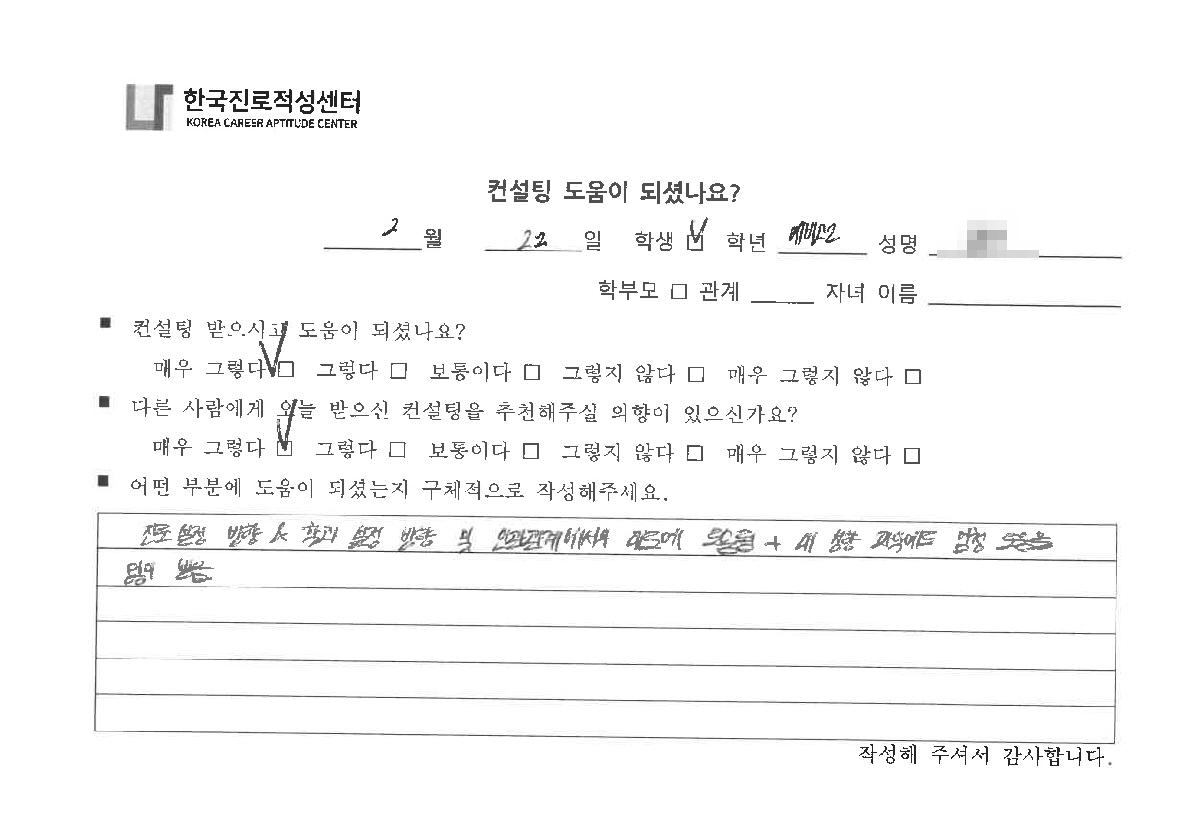 한국진로적성센터
KOREA CAREER APTITUDE CENTER
컨설팅 도움이 되셨나요?
2월 22일 학생 ☑ 학년 예비고2 성명
학부모 □ 관계 자녀 이름
■ 컨설팅 받으시고 도움이 되셨나요?
매우 그렇다 ☑ 그렇다 □ 보통이다 □ 그렇지 않다 □ 매우 그렇지 않다 □
■ 다른 사람에게 오늘 받으신 컨설팅을 추천해주실 의향이 있으신가요?
매우 그렇다 ☑ 그렇다 □ 보통이다 □ 그렇지 않다 □ 매우 그렇지 않다 □
■ 어떤 부분에 도움이 되셨는지 구체적으로 작성해주세요.
진로 설정 방향 & 학과 설정 방향 및 인간관계에서의 태도에 도움됨 + 내 성향 파악에도 엄청 도움을
많이 받음
작성해 주셔서 감사합니다.